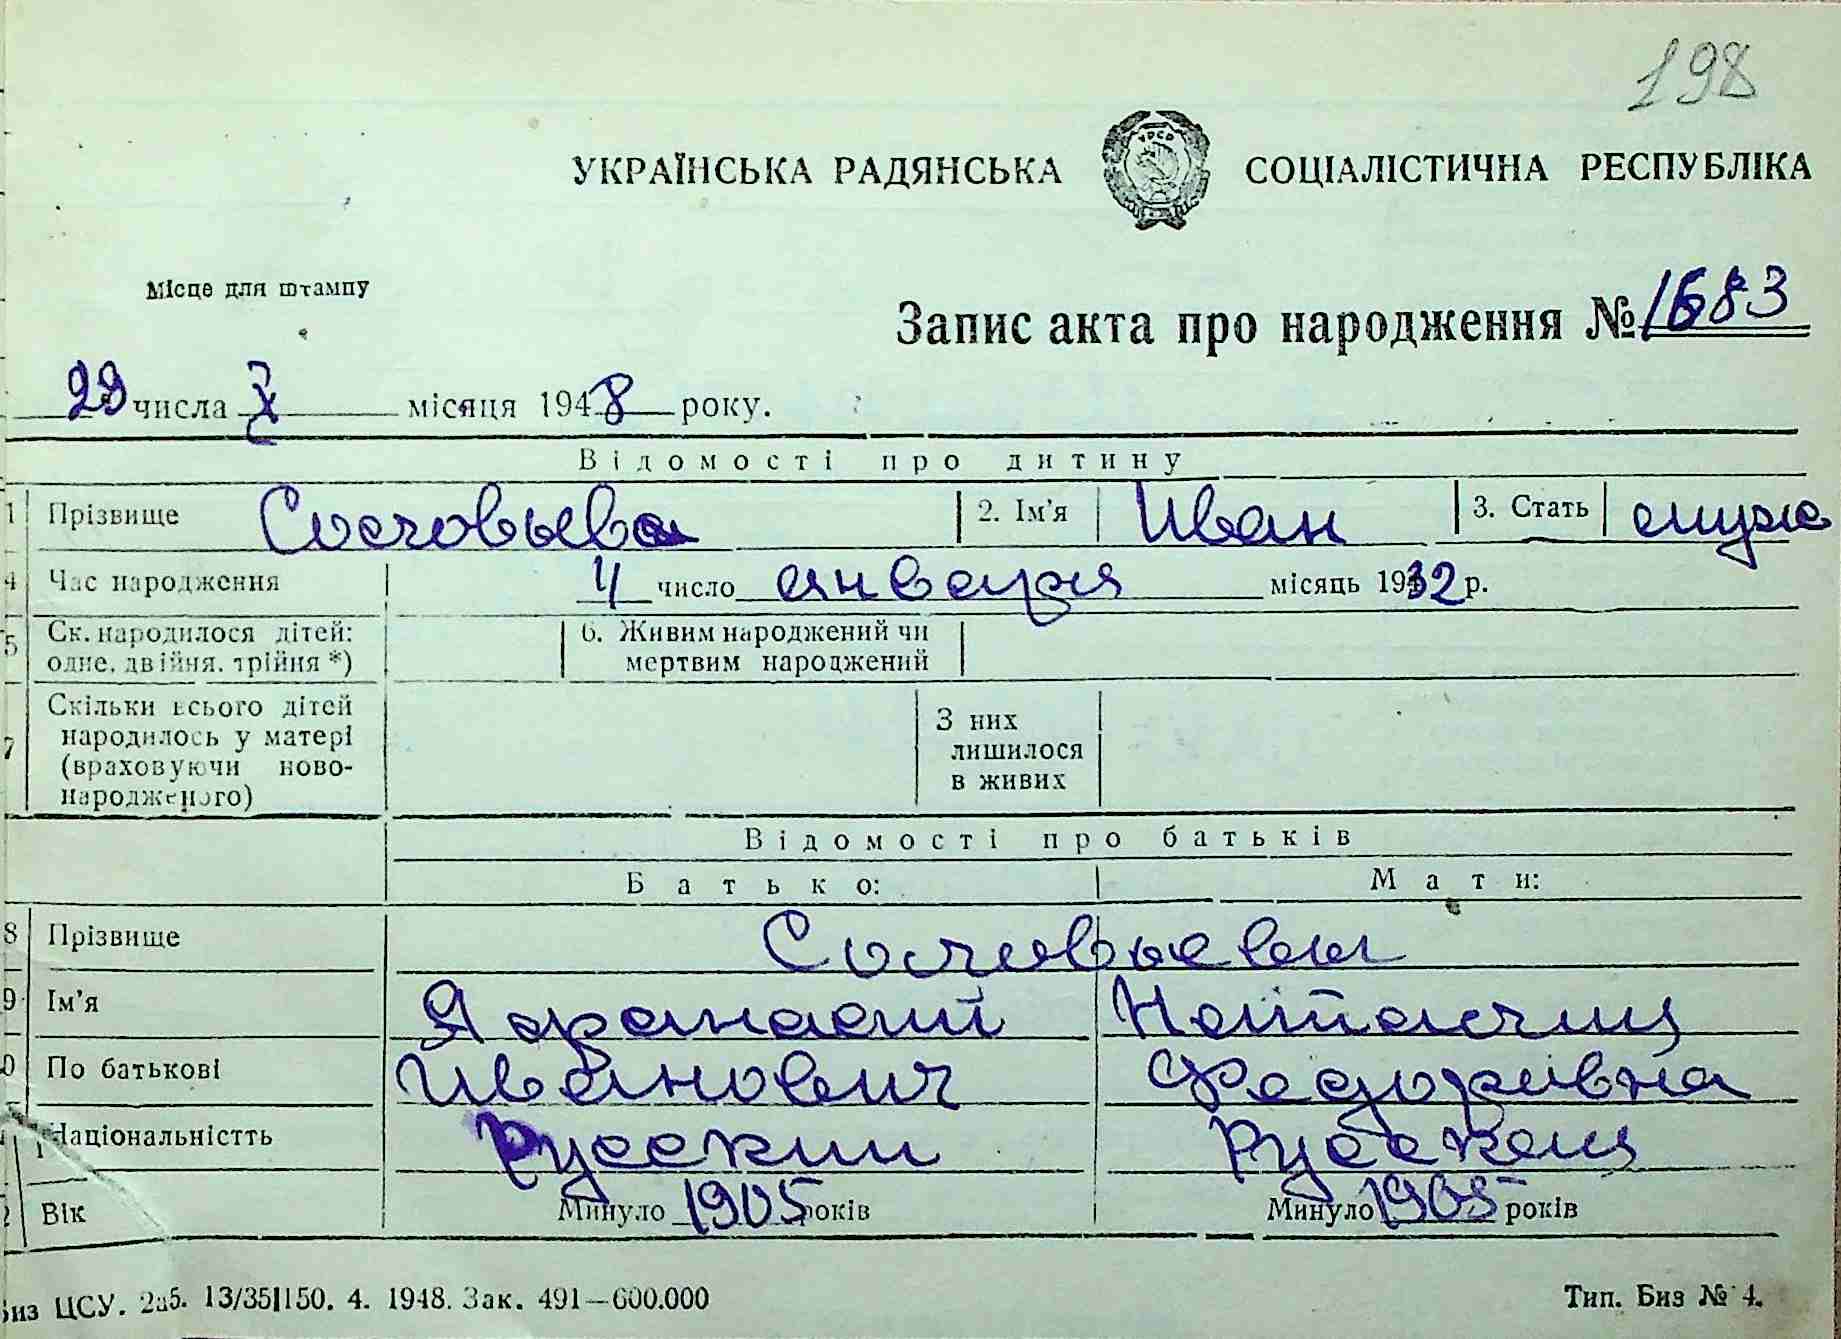 198
УКРАЇНСЬКА РАДЯНСЬКА СОЦІАЛІСТИЧНА РЕСПУБЛІКА
Місце для штампу
Запис акта про народження № 1683
29 числа X місяця 1948 року.
Відомості про дитину
1 Прізвище Соловьев 2. Ім'я Иван 3. Стать муж
4 Час народження 4 число января місяць 1932 р.
5 Ск. народилося дітей: одне, двійня, трійня *) 6. Живим народжений чи мертвим народжений
7 Скільки всього дітей народилось у матері (враховуючи новонародженого) З них лишилося в живих
Відомості про батьків
Батько: Мати:
8 Прізвище Соловьевы
9 Ім'я Афанасий Наталия
По батькові Иванович Федоровна
Національністть Русский Русская
Вік Минуло 1905 років Минуло 1905 років
ЦСУ. 2аб. 13/35|150. 4. 1948. Зак. 491—600.000 Тип. Биз № 4.